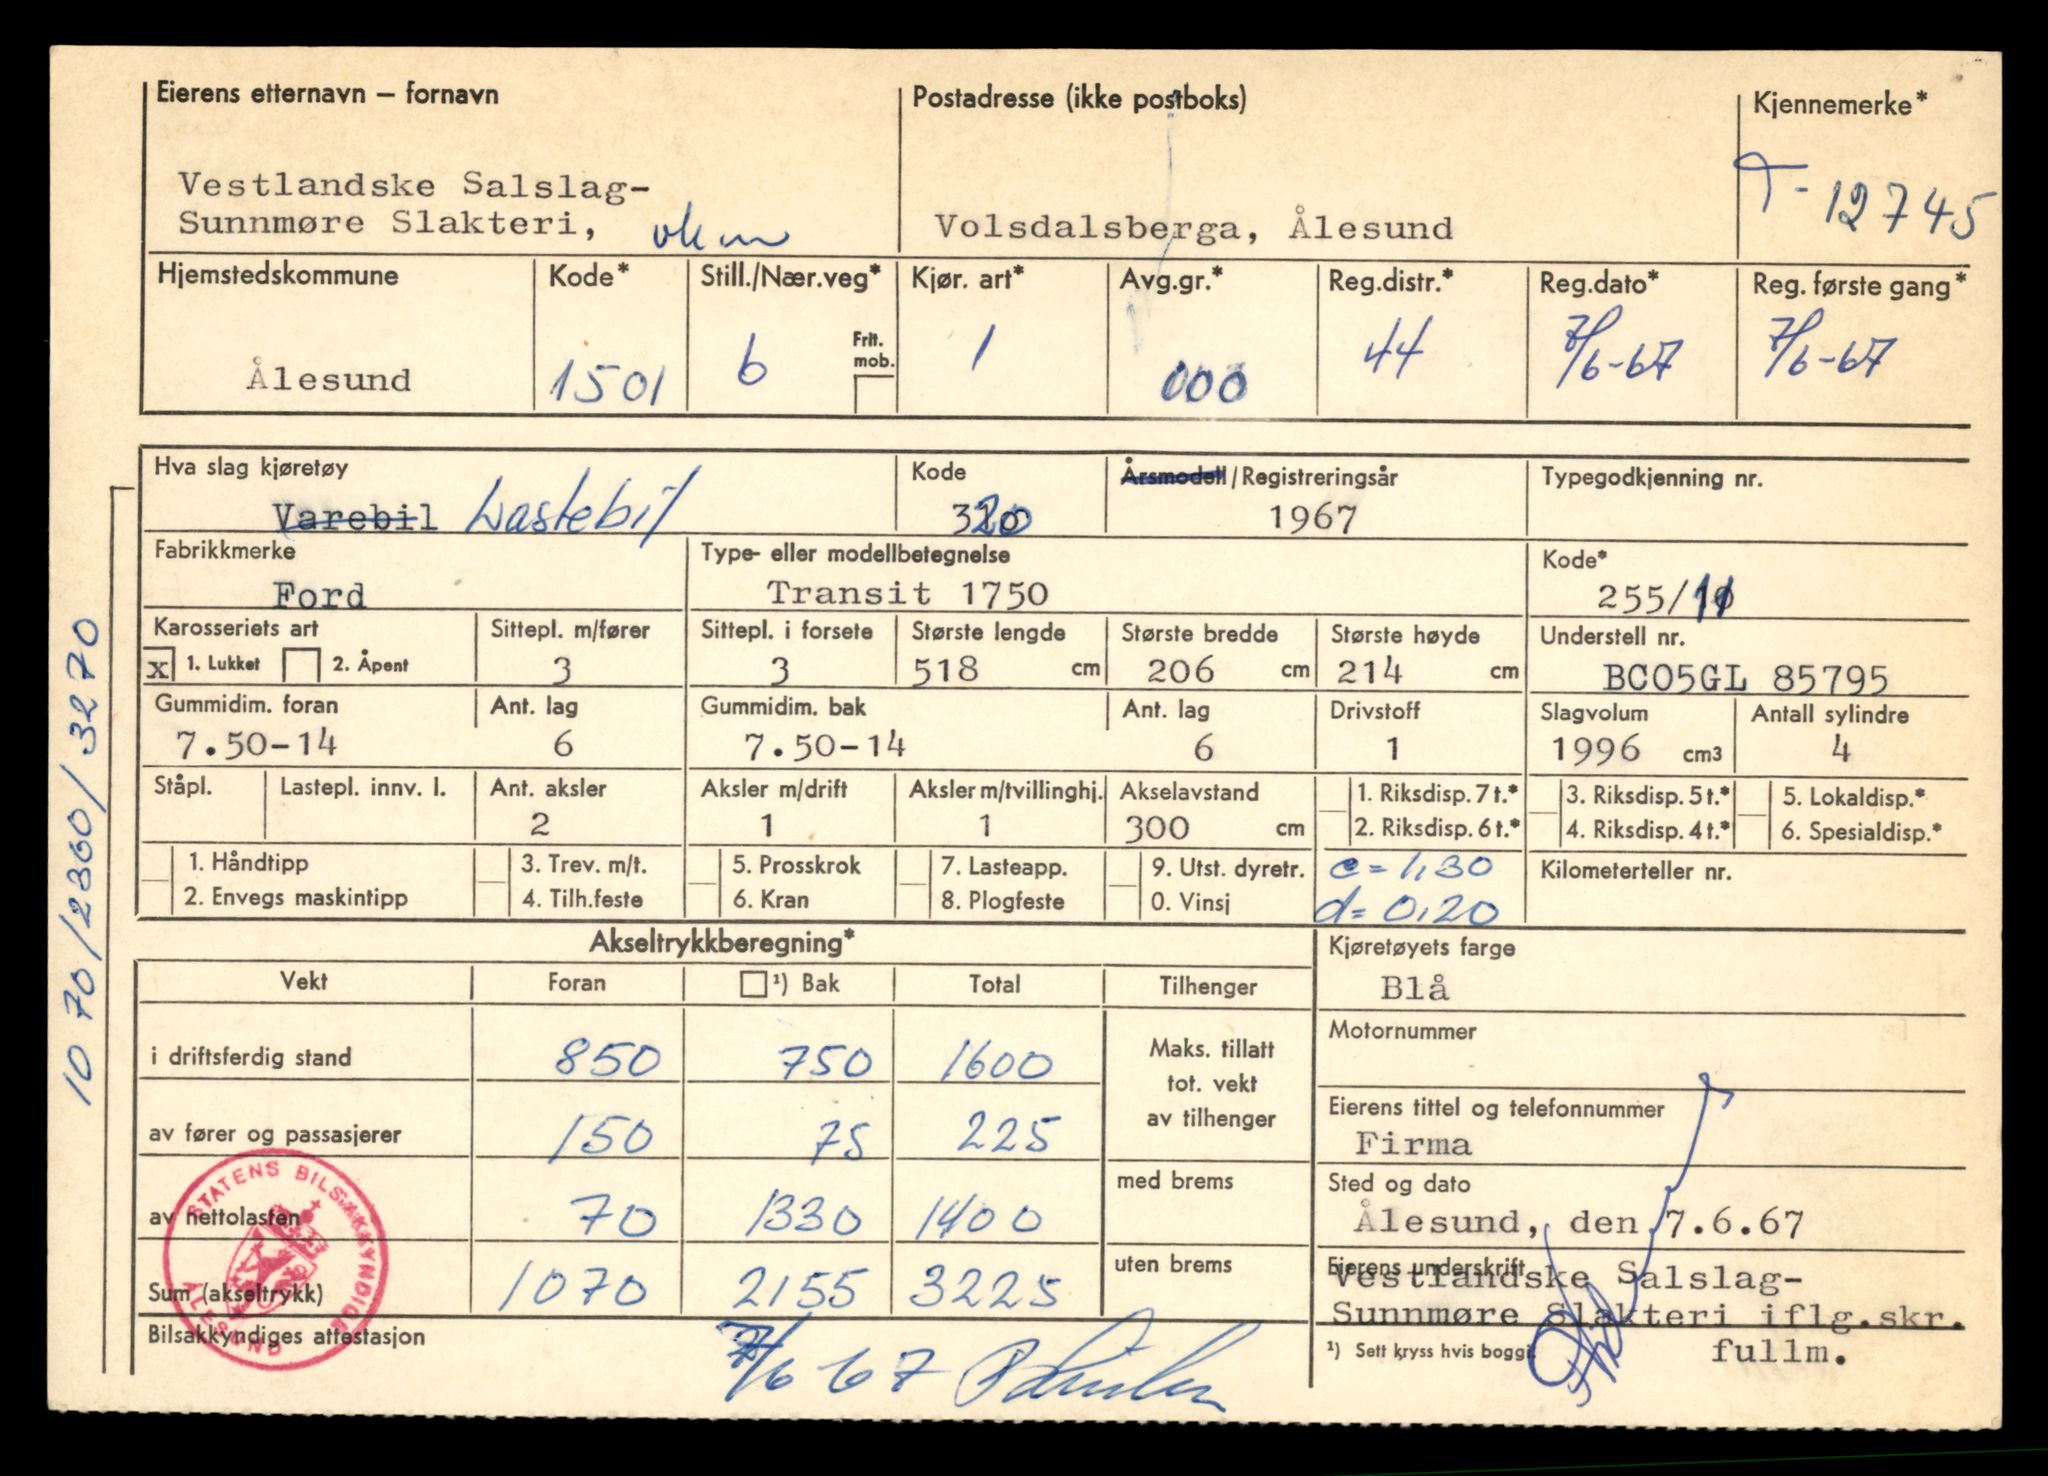 Eierens etternavn – fornavn
Postadresse (ikke postboks)
Kjennemerke*
Vestlandske Salslag-
Sunnmøre Slakteri,
Volsdalsberga, Ålesund
T-12745
Hjemstedskommune
Kode*
Still./Nær.veg*
Kjør. art*
Avg.gr.*
Reg.distr.*
Reg.dato*
Reg. første gang*
Frit. mob.
Ålesund
1501
6
1
000
44
7/6-67
7/6-67
Hva slag kjøretøy
Kode
Årsmodell/Registreringsår
Typegodkjenning nr.
Varebil Lastebil
320
1967
Fabrikkmerke
Type- eller modellbetegnelse
Kode*
Ford
Transit 1750
255/11
Karosseriets art
Sittepl. m/fører
Sittepl. i forsete
Største lengde
Største bredde
Største høyde
Understell nr.
x 1. Lukket 2. Åpent
3
3
518 cm
206 cm
214 cm
BC05GL 85795
Gummidim. foran
Ant. lag
Gummidim. bak
Ant. lag
Drivstoff
Slagvolum
Antall sylindre
7.50-14
6
7.50-14
6
1
1996 cm3
4
Ståpl.
Lastepl. innv. l.
Ant. aksler
Aksler m/drift
Aksler m/tvillinghj.
Akselavstand
1. Riksdisp. 7 t.*
3. Riksdisp. 5 t.*
5. Lokaldisp.*
2
1
1
300 cm
2. Riksdisp. 6 t.*
4. Riksdisp. 4 t.*
6. Spesialdisp.*
1. Håndtipp
3. Trev. m/t.
5. Prosskrok
7. Lasteapp.
9. Utst. dyretr.
e = 1,30
Kilometerteller nr.
2. Envegs maskintipp
4. Tilh.feste
6. Kran
8. Plogfeste
0. Vinsj
d = 0,20
1070/2300/3270
Akseltrykkberegning*
Vekt
Foran
¹) Bak
Total
Tilhenger
i driftsferdig stand
850
750
1600
Maks. tillatt
tot. vekt
av tilhenger
av fører og passasjerer
150
75
225
av nettolasten
70
1330
1400
med brems
Sum (akseltrykk)
1070
2155
3225
uten brems
Bilsakkyndiges attestasjon
7/6 67
STATENS BILSAKKYNDIGE
ÅLESUND
Kjøretøyets farge
Blå
Motornummer
Eierens tittel og telefonnummer
Firma
Sted og dato
Ålesund, den 7.6.67
Eierens underskrift
Vestlandske Salslag-
Sunnmøre Slakteri iflg.skr.
fullm.
¹) Sett kryss hvis boggi.